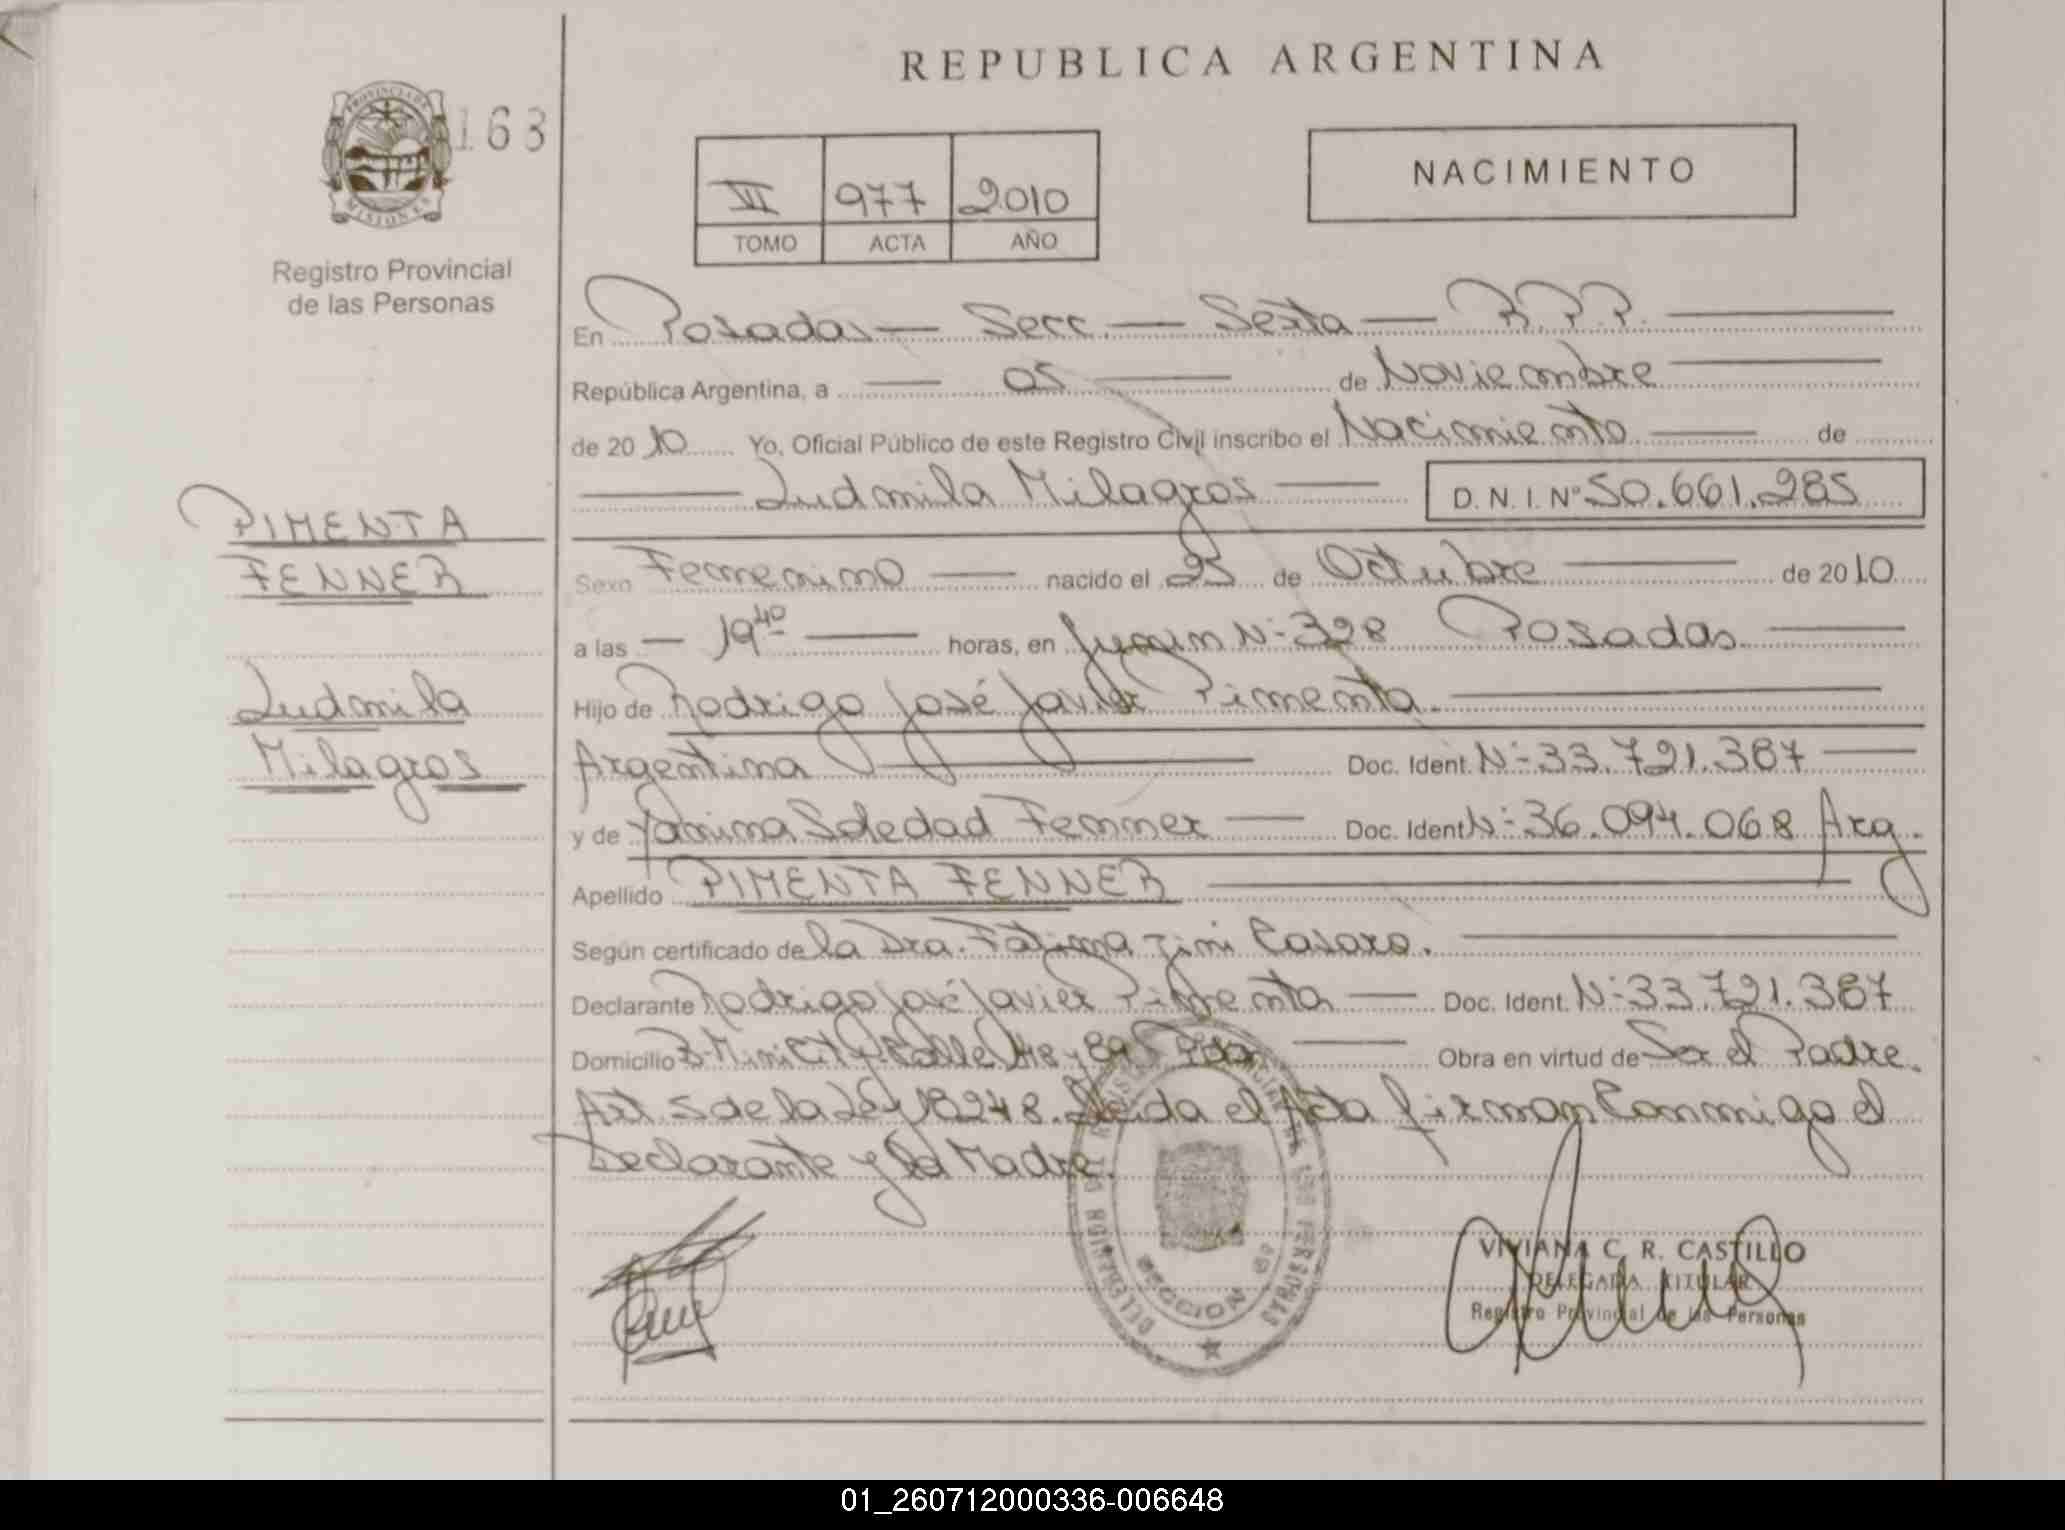 REPUBLICA ARGENTINA
PROVINCIA DE
MISIONES
163
Registro Provincial
de las Personas
VI 977 2010
TOMO ACTA AÑO
NACIMIENTO
En Posadas — Secc. — Sexta — R.P.P. —
República Argentina, a — 05 — de Noviembre —
de 2010 Yo, Oficial Público de este Registro Civil inscribo el Nacimiento — de
— Ludmila Milagros — D. N. I. Nº 50.661.285
PIMENTA
FENNER
Ludmila
Milagros
Sexo Femenino — nacido el 25 de Octubre — de 2010
a las — 19 40 — horas, en Junin Nº 328 Posadas —
Hijo de Rodrigo José Javier Pimenta. —
Argentina — Doc. Ident. Nº 33.721.387 —
y de Yanina Soledad Fenner — Doc. Ident Nº 36.094.068 Arg.
Apellido PIMENTA FENNER —
Según certificado de la Dra. Fátima Casaro. —
Declarante Rodrigo José Javier Pimenta — Doc. Ident. Nº 33.721.387
Domicilio — Obra en virtud de Ser el Padre.
Art. 5 de la Ley 18248. Leida el Acta firman Conmigo el
Declarante y la Madre.
SECCION 6º
VIVIANA C. R. CASTILLO
DELEGADA TITULAR
Registro Provincial de las Personas
01_260712000336-006648